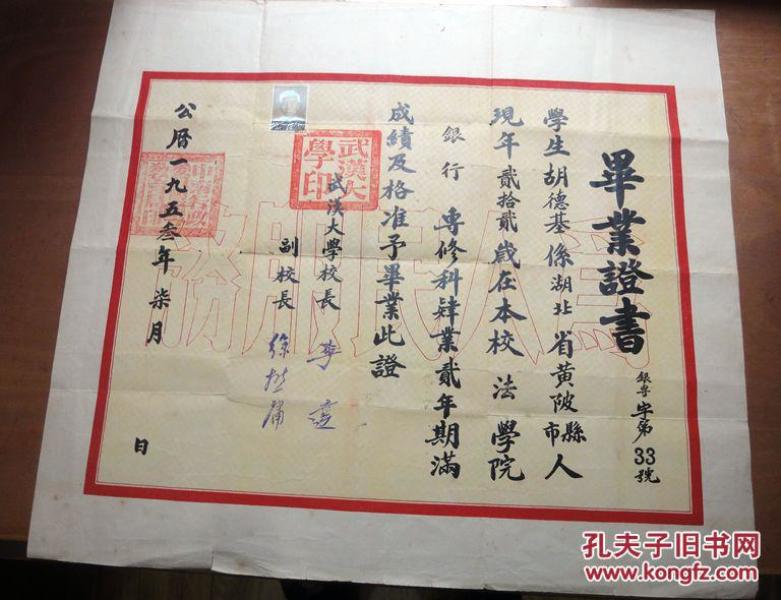 畢業證書
銀專字第33號
學生胡德基係湖北省黃陂縣市人
現年貳拾貳歲在本校法學院
銀行專修科肄業貳年期滿
成績及格准予畢業此證
武漢大學校長 李達
副校長 徐懋庸
武漢大學印
公曆一九五叁年柒月 日
為人民服務
孔夫子旧书网
www.kongfz.com